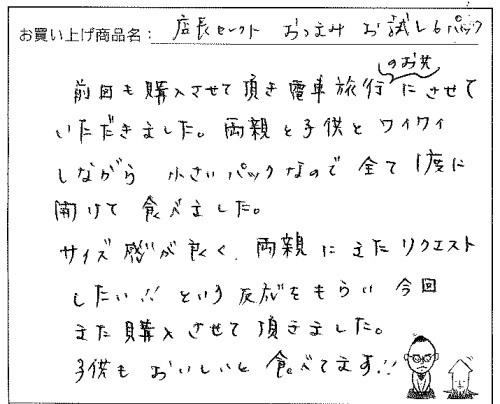 お買い上げ商品名：店長セレクト おつまみ お試し6パック
前回も購入させて頂き電車旅行のお共にさせて
いただきました。両親と子供とワイワイ
しながら 小さいパックなので全て1度に
開けて食べました。
サイズ感が良く、両親にまたリクエスト
したい!!という反応をもらい今回
また購入させて頂きました。
子供もおいしいと食べてます!!